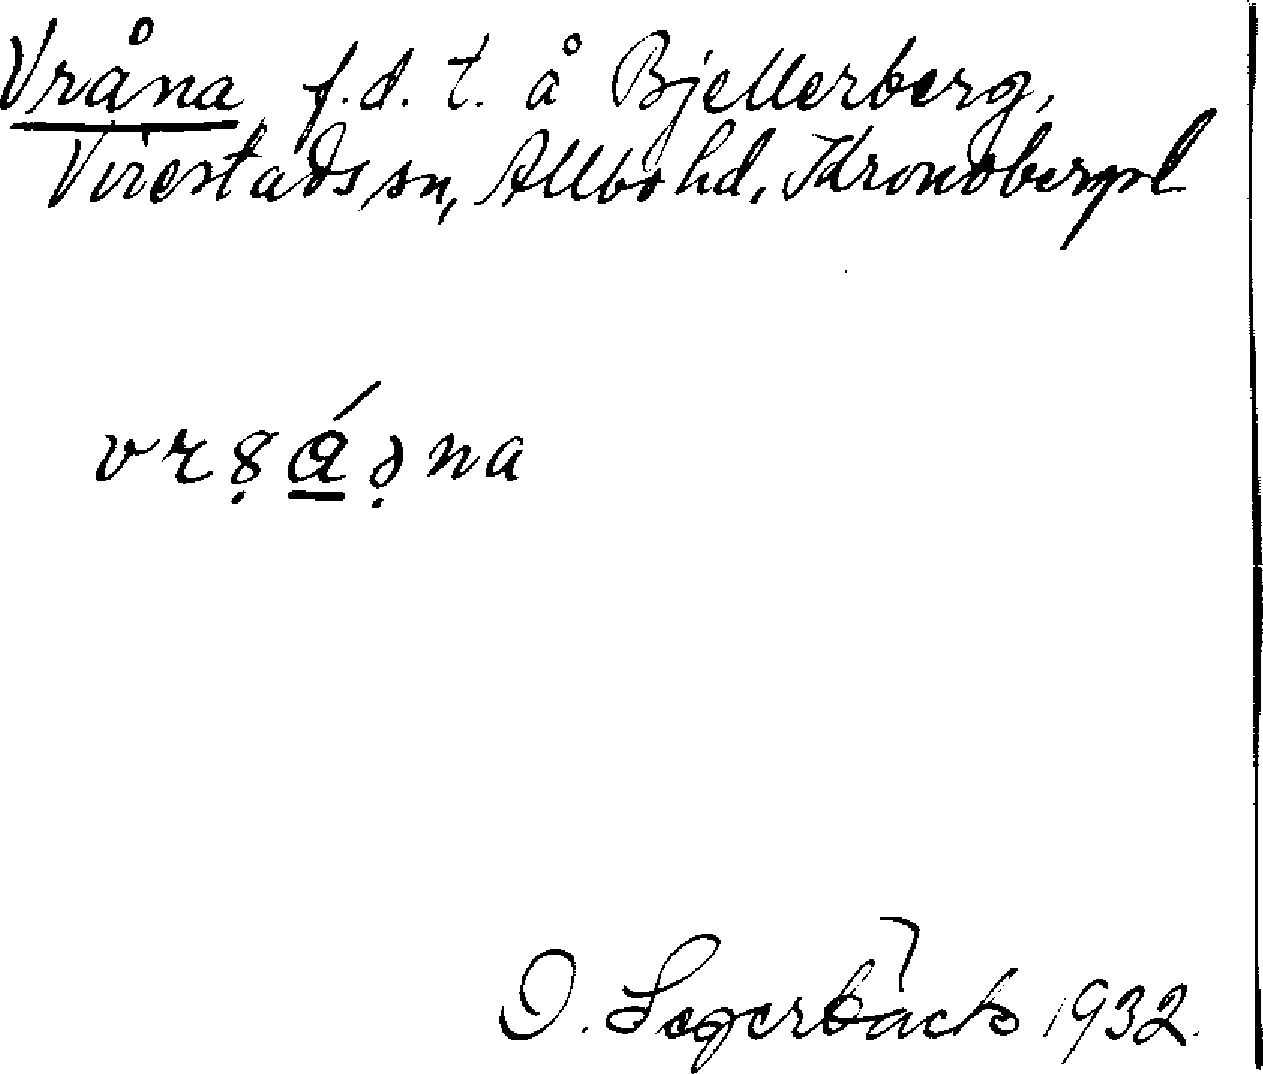 Vråna f.d. t. å Bjellerberg,
Virestads sn, Allbo hd, Kronobergs l
O. Segerbäck 1932.